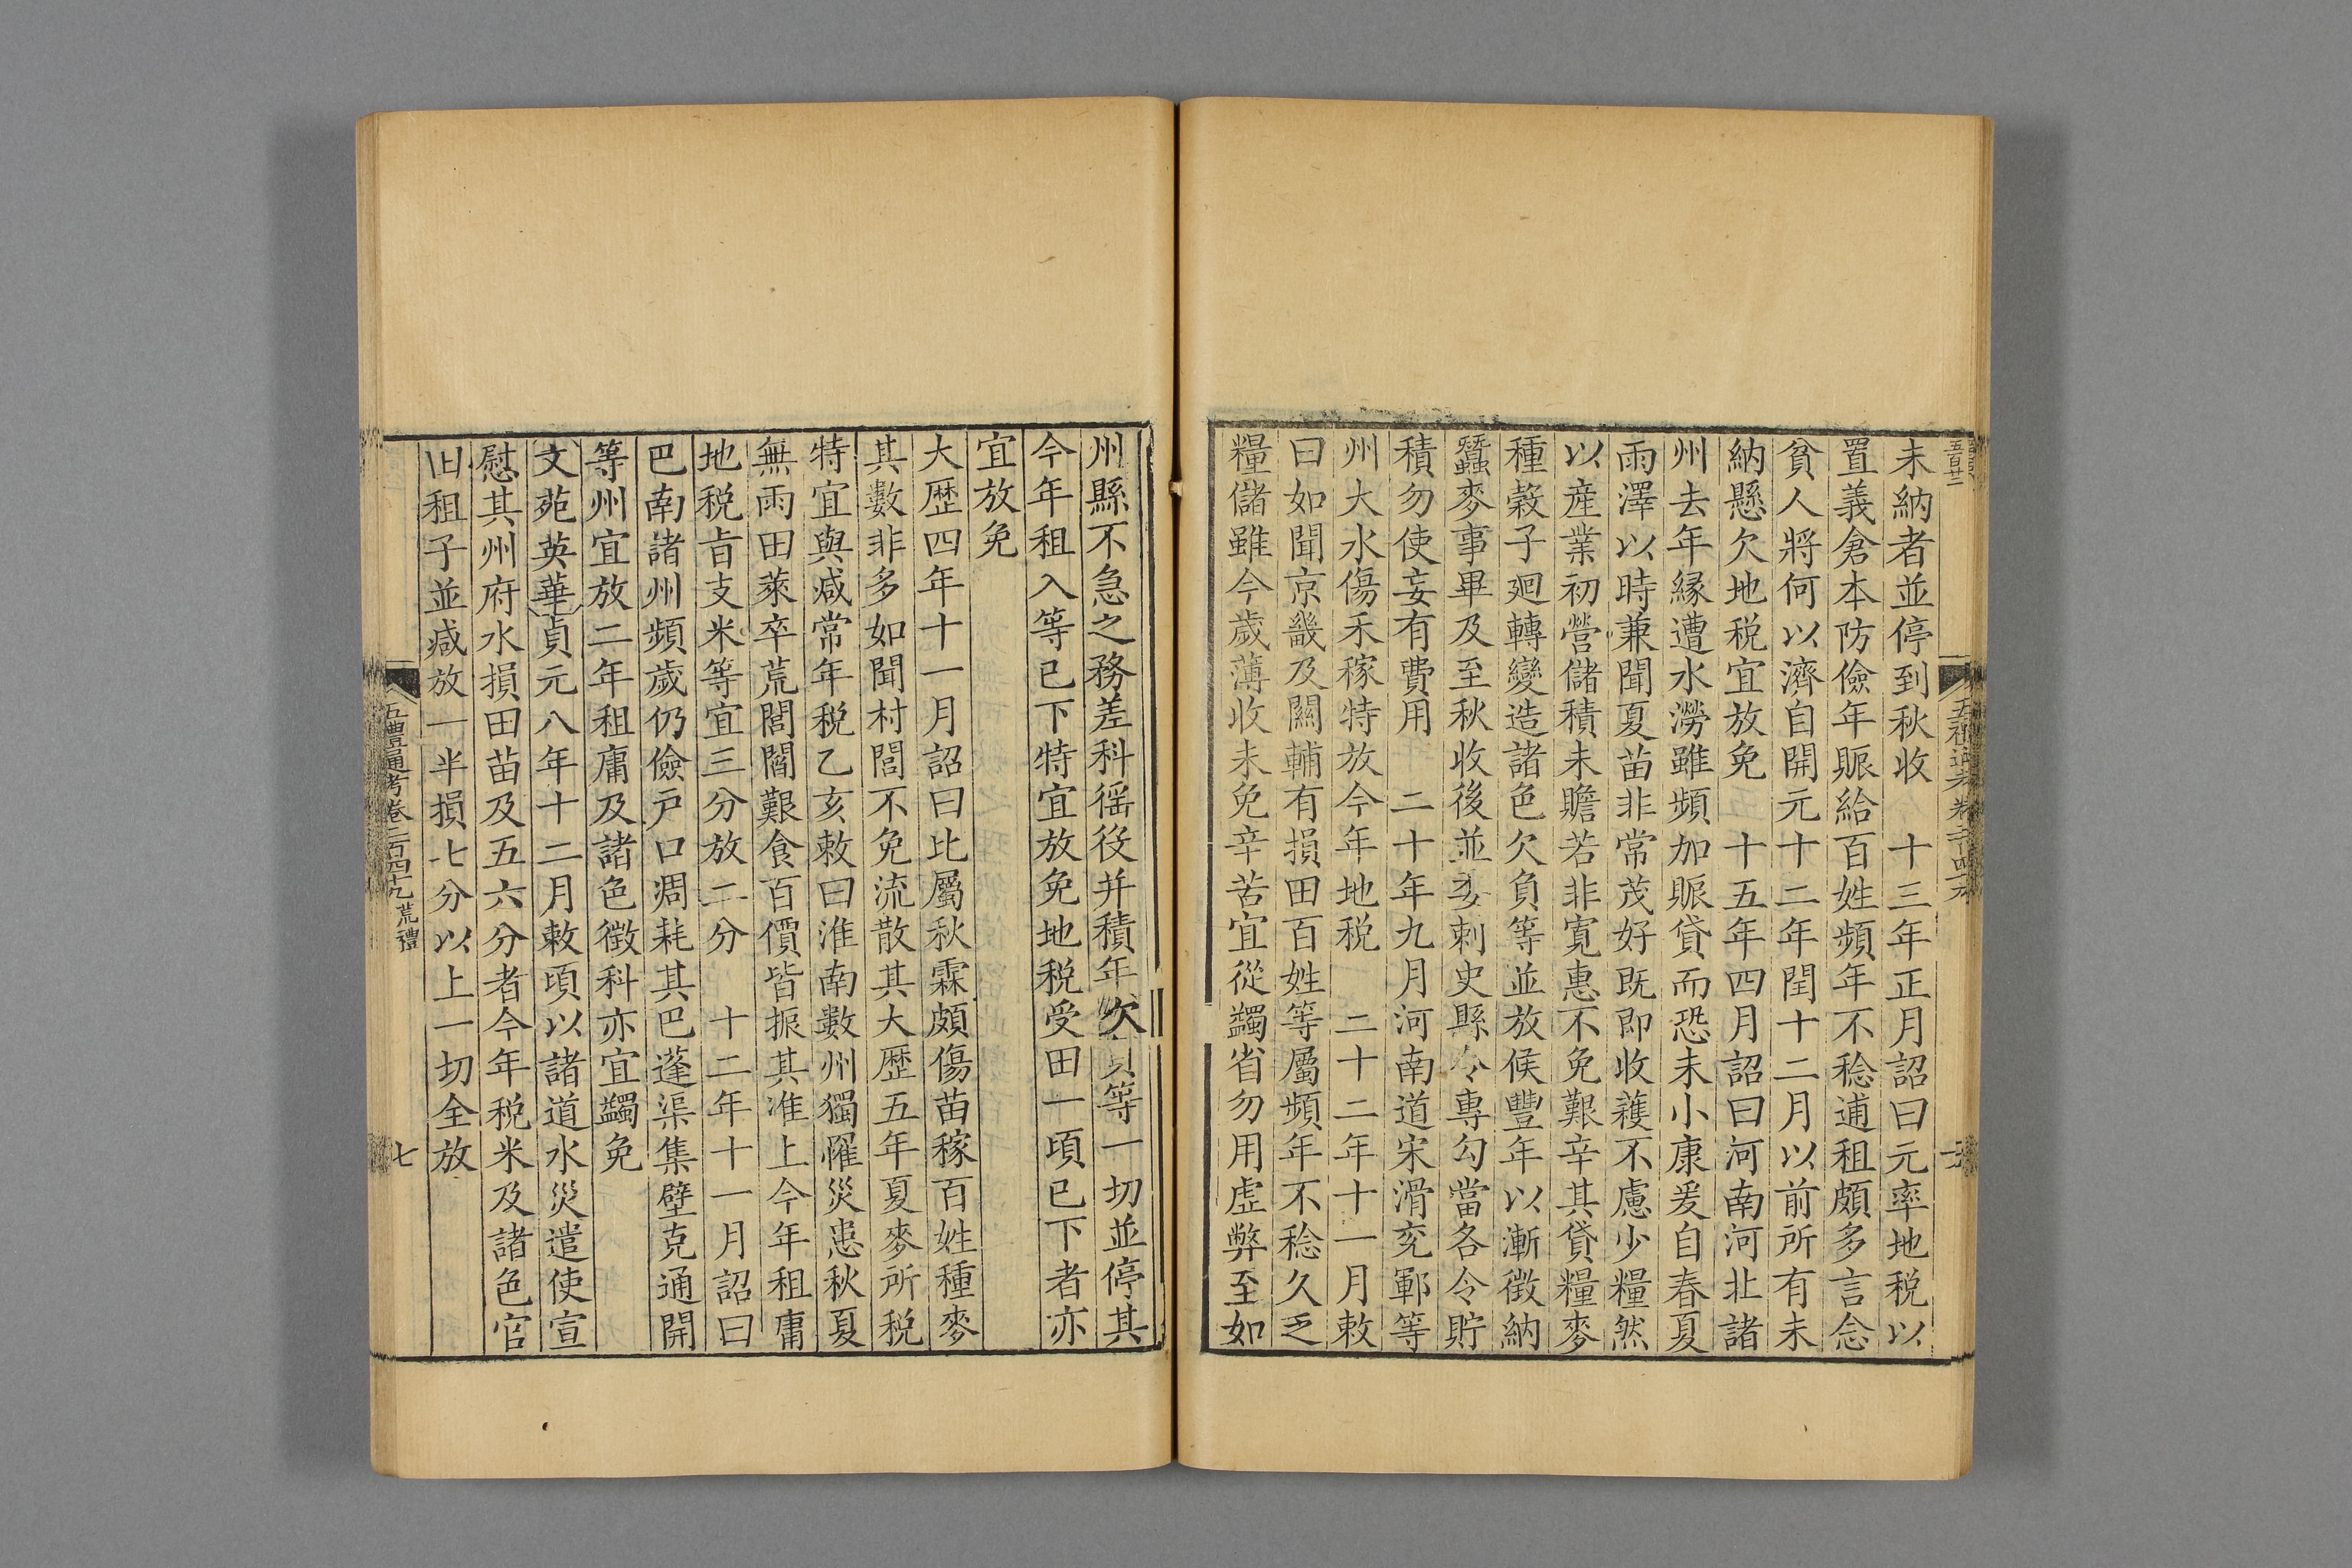 未納者並停到秋收　十三年正月詔曰元率地税以
置義倉本防儉年賑給百姓頻年不稔逋租頗多言念
貧人將何以濟自開元十二年閏十二月以前所有未
納懸欠地税宜放免　十五年四月詔曰河南河北諸
州去年緣遭水澇雖頻加賑貸而恐未小康爰自春夏
雨澤以時兼聞夏苗非常茂好既即收穫不慮少糧然
以産業初營儲積未贍若非寬惠不免艱辛其貸糧麥
種穀子迴轉變造諸色欠負等並放候豐年以漸徵納
蠶麥事畢及至秋收後並委刺史縣令專勾當各令貯
積勿使妄有費用　二十年九月河南道宋滑兖鄆等
州大水傷禾稼特放今年地税　二十二年十一月敕
曰如聞京畿及關輔有損田百姓等屬頻年不稔久乏
糧儲雖今歲薄收未免辛苦宜從蠲省勿用虛弊至如
州縣不急之務差科徭役并積年欠負等一切並停其
今年租入等已下特宜放免地税受田一頃已下者亦
宜放免
大歷四年十一月詔曰比屬秋霖頗傷苗稼百姓種麥
其數非多如聞村閭不免流散其大歷五年夏麥所税
特宜與減常年税乙亥敕曰淮南數州獨罹災患秋夏
無雨田萊卒荒閭閻艱食百價皆振其淮上今年租庸
地税旨支米等宜三分放二分　十二年十一月詔曰
巴南諸州頻歲仍儉戸口凋耗其巴蓬渠集壁充通開
等州宜放二年租庸及諸色徵科亦宜蠲免
文苑英華貞元八年十二月敕頃以諸道水災遣使宣
慰其州府水損田苗及五六分者今年税米及諸色官
田租子並減放一半損七分以上一切全放
五禮通考卷二百四十九 荒禮
七